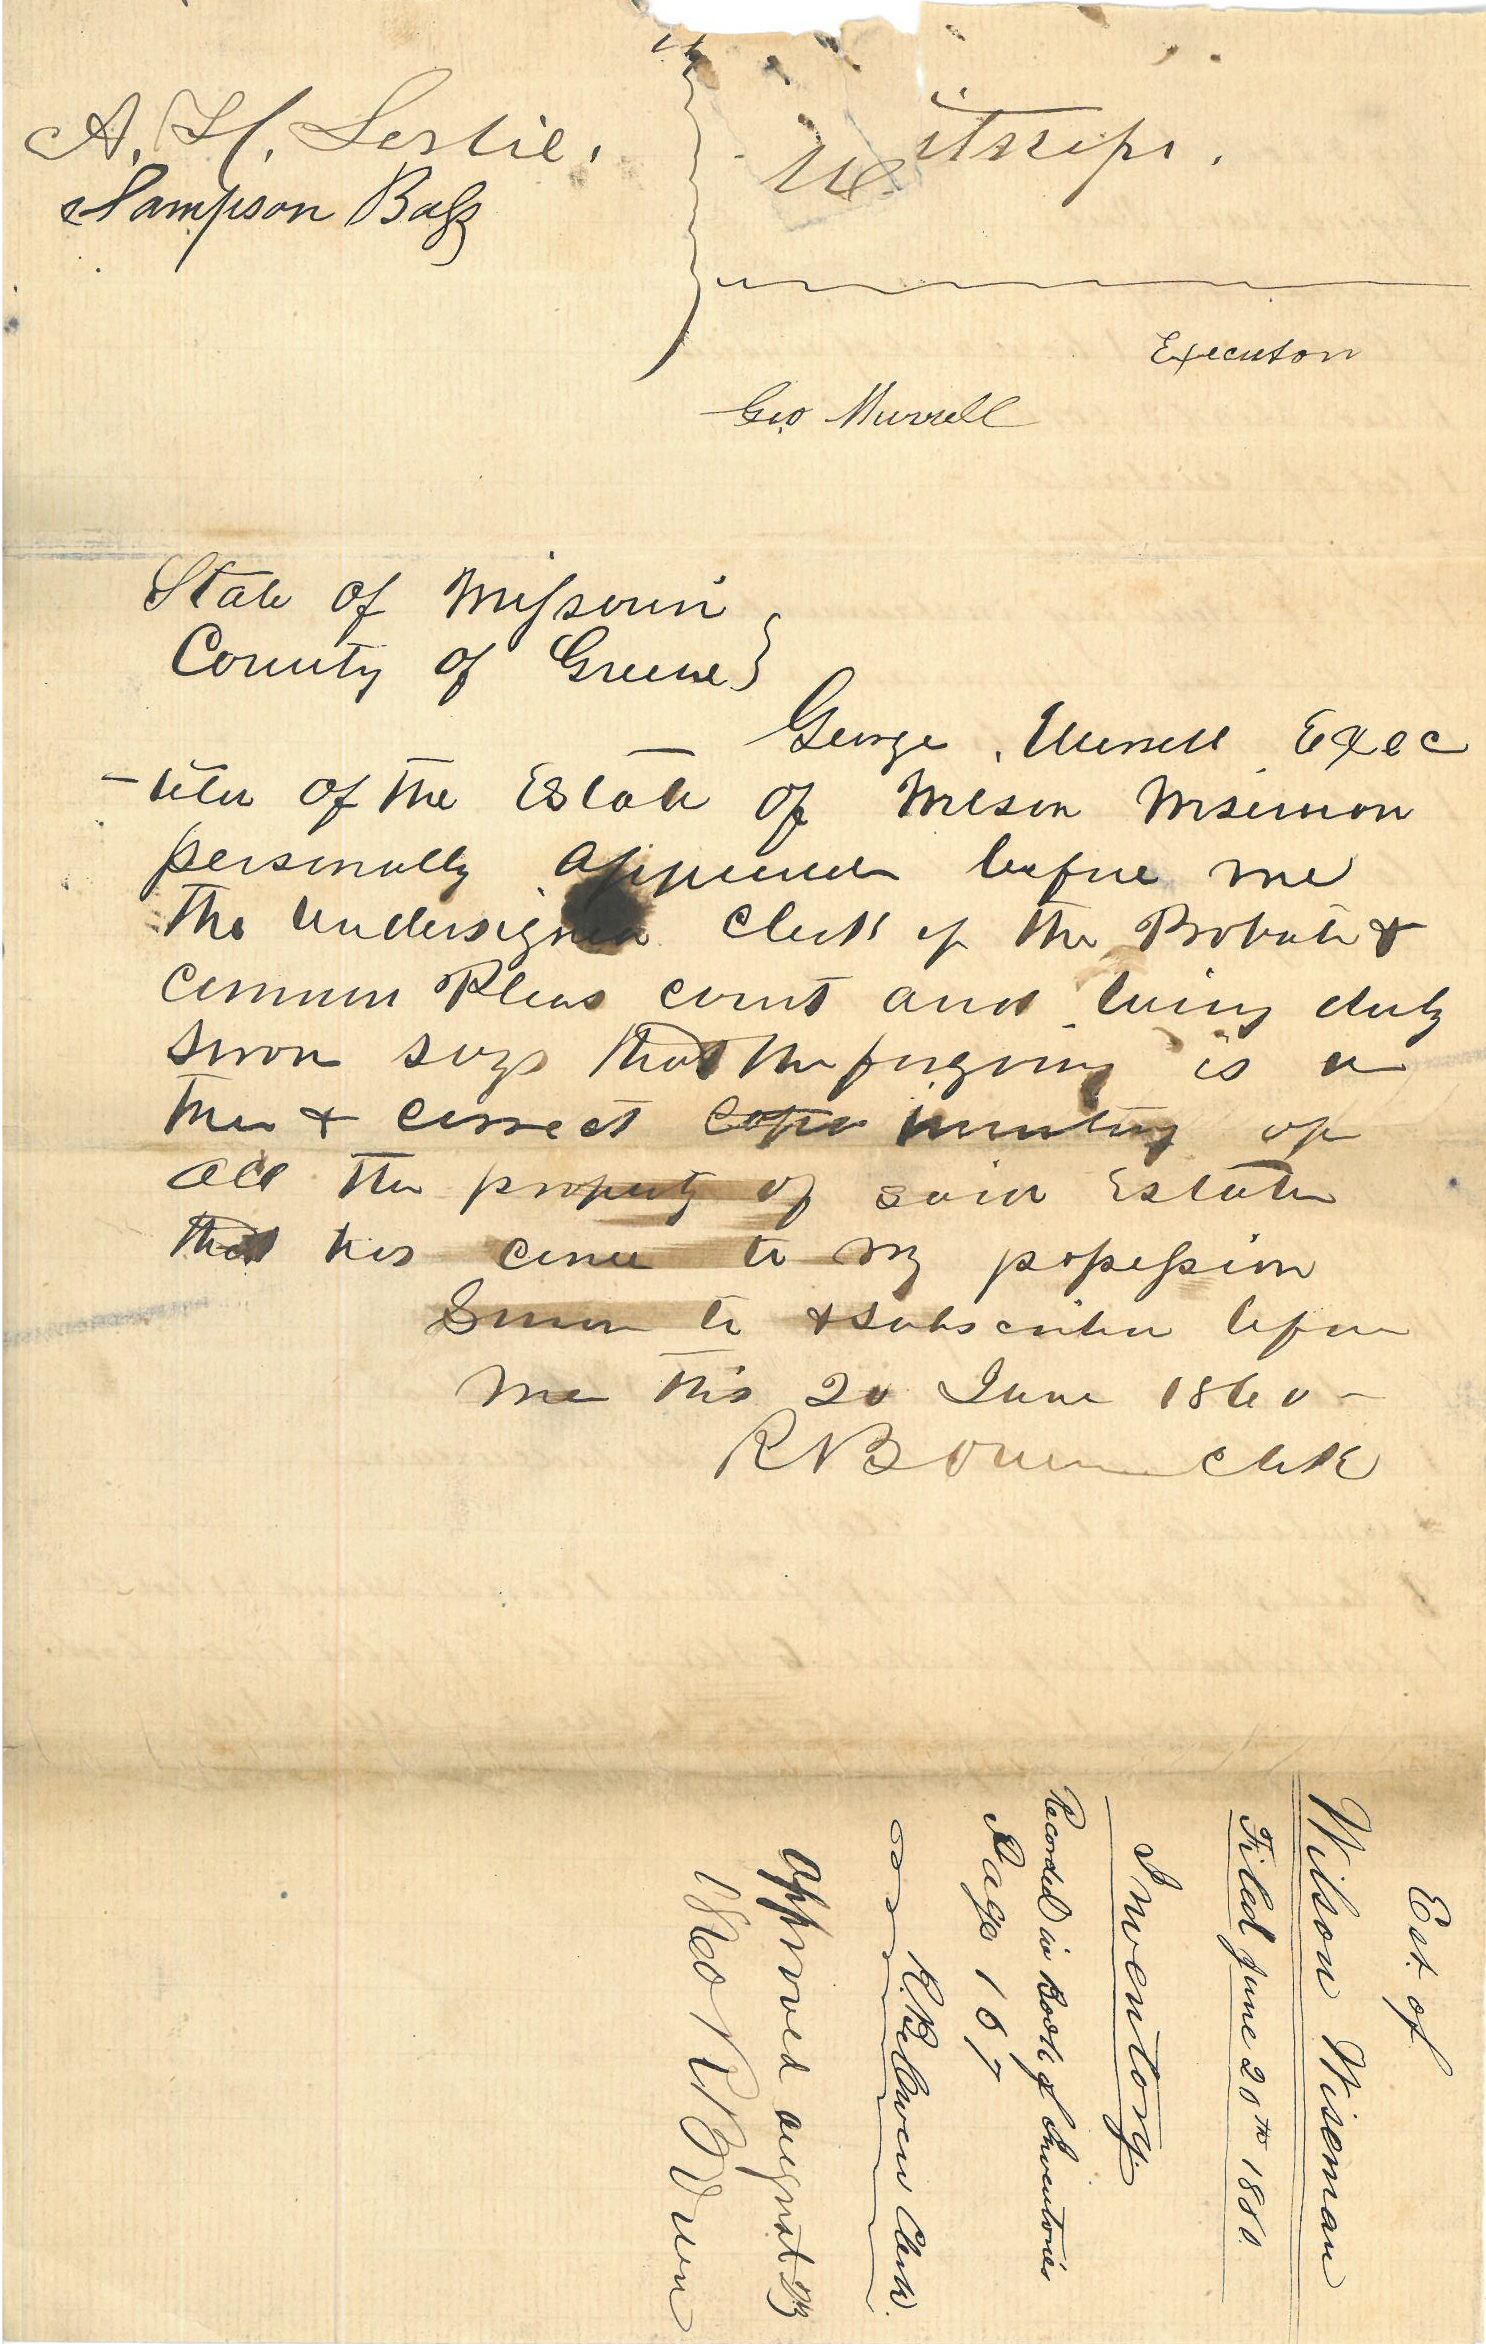 A. H. Leslie.
Sampson Bass
Witnesses.
Executor
Geo Murrell
State of Missouri
County of Greene
George Murrell Exec
-utor of the Estate of Wilson Wisemon
personally appeared before me
the undersigned Clerk of the Probate &
Common Pleas court and being duly
sworn says that the forgoing is a
true & correct copy inventory of
all the property of said Estate
that has come to my possession
Sworn to & subscribed before
me this 20 June 1860 -
R B Owen clerk
Est. of
Wilson Wiseman
Filed June 20th 1860.
Inventory.
Recorded in Book of Inventories
Page 167
R. B. Owen Clerk.
approved august
1860 R B Owen